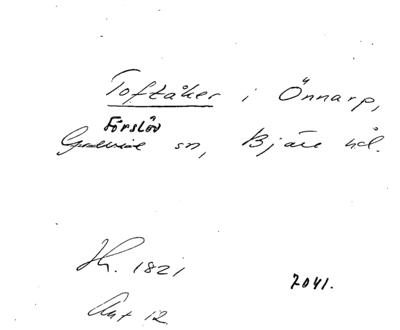 Toftåker i Önnarp,
Förslöv
Grevie sn, Bjäre hd.
Sk. 1821
7041.
Akt 12